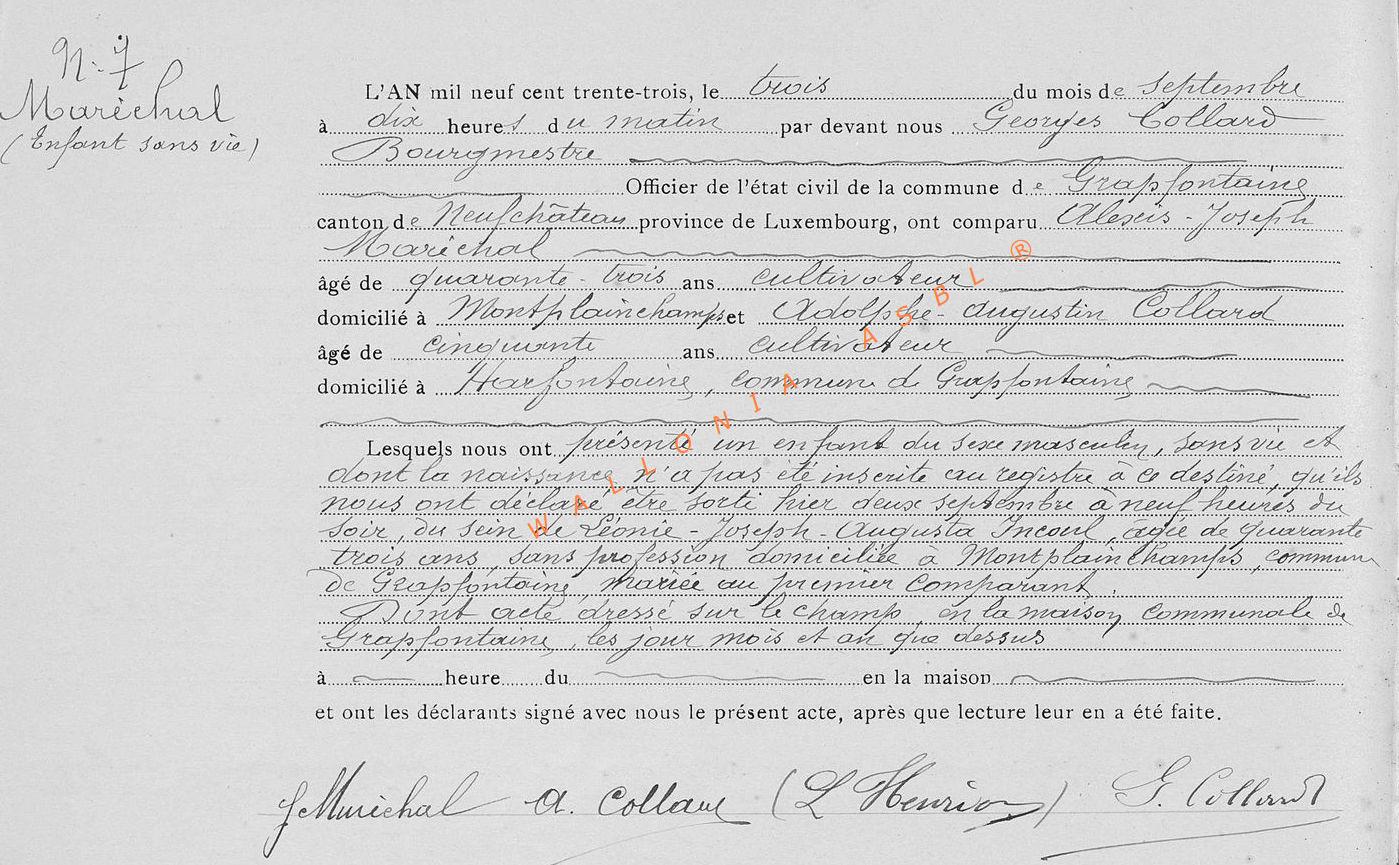 N. 7
Maréchal
(Enfant sans vie)
L'AN mil neuf cent trente-trois, le trois du mois de septembre
à dix heures du matin par devant nous Georges Collard
Bourgmestre
Officier de l'état civil de la commune de Grapfontaine
canton de Neufchâteau province de Luxembourg, ont comparu Alexis-Joseph
Maréchal
âgé de quarante-trois ans cultivateur
domicilié à Montplainchamps et Adolphe-Augustin Collard
âgé de cinquante ans cultivateur
domicilié à Harfontaine, commune de Grapfontaine
Lesquels nous ont présenté un enfant du sexe masculin, sans vie et
dont la naissance n'a pas été inscrite au registre à ce destiné, qu'ils
nous ont déclaré être sorti hier deux septembre à neuf heures du
soir, du sein de Léonie-Joseph-Augusta Incoul, âgée de quarante
trois ans, sans profession domiciliée à Montplainchamps, commune
de Grapfontaine, mariée au premier Comparant.
Dont acte dressé sur le champ en la maison communale de
Grapfontaine, les jour mois et an que dessus
à heure du en la maison
et ont les déclarants signé avec nous le présent acte, après que lecture leur en a été faite.
J Maréchal A. Collard (L Henrion) G. Collard
WALLONIA ASBL ®